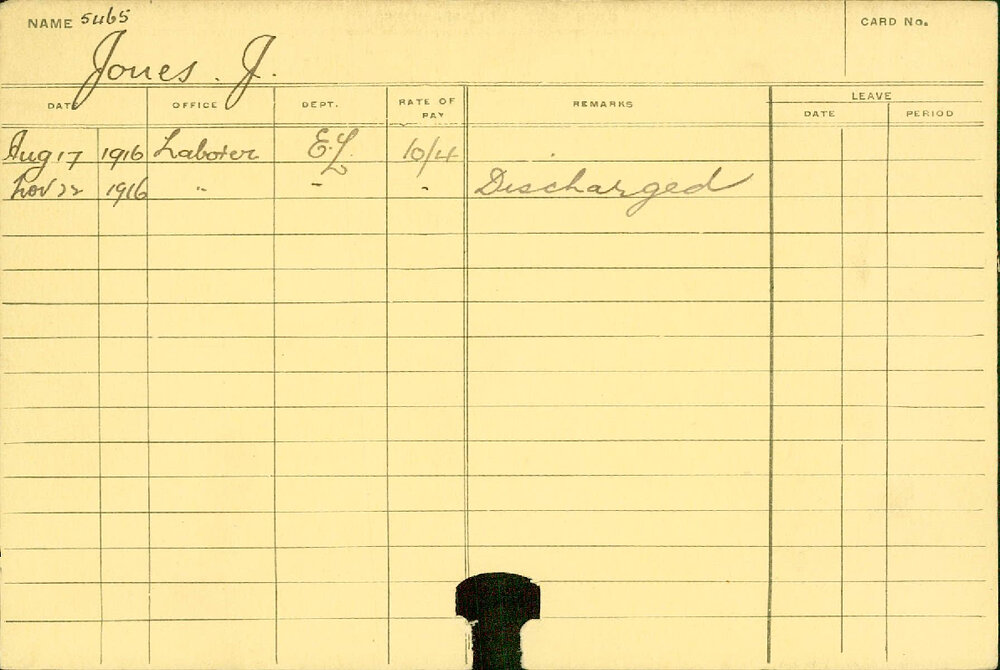 NAME 5465 CARD No.
Jones. J.
DATE OFFICE DEPT. RATE OF PAY REMARKS LEAVE
DATE PERIOD
Aug 17 1916 Laborer E.L. 10/4
Nov 22 1916 " " " Discharged